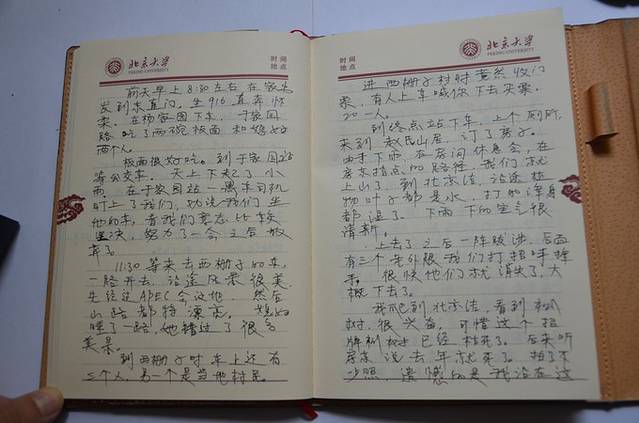 北京大学
PEKING UNIVERSITY
时间
地点
前天早上8:30左右在家出
发到东直门，坐916直奔怀
柔，在杨家园下车，于家园
路吃了两碗板面 和媳妇
两个人。
板面很好吃。到于家园站
等公交车。天上下起了小
雨。在于家园站一黑车司机
盯上了我们，劝说我们坐
他的车，看我们意志比较
坚决，努力了一会之后放
弃了。
11:30等来去西栅子的车，
一路开去，沿途风景很美
先经过APEC会议地，然后
山路都特漂亮。媳妇
睡了一路，她错过了很多
美景。
到西栅子时车上还有
三个人，另一个是当地村民。
北京大学
PEKING UNIVERSITY
时间
地点
进西栅子村时竟然收门
票，有人上车喊你下去买票，
20一人。
到终点站下车，上个厕所，
来到赵氏山居，订了房子。
由于下雨，在房间休息会，在
房东指点的路径，我们就
上山了。到北京结，沿途植
物叶子都是水，打的浑身
都湿了。下雨下的空气很
清新。
上去了之后一阵跋涉，后面
有三个老外跟我们打招呼挥
手。很快他们就消失了，大
概下去了。
我爬到北京结，看到
树，很兴奋，可惜这个招
牌树已经枯死了。后来听
房东说去年就死了。拍了不
少照，遗憾的是我没在这